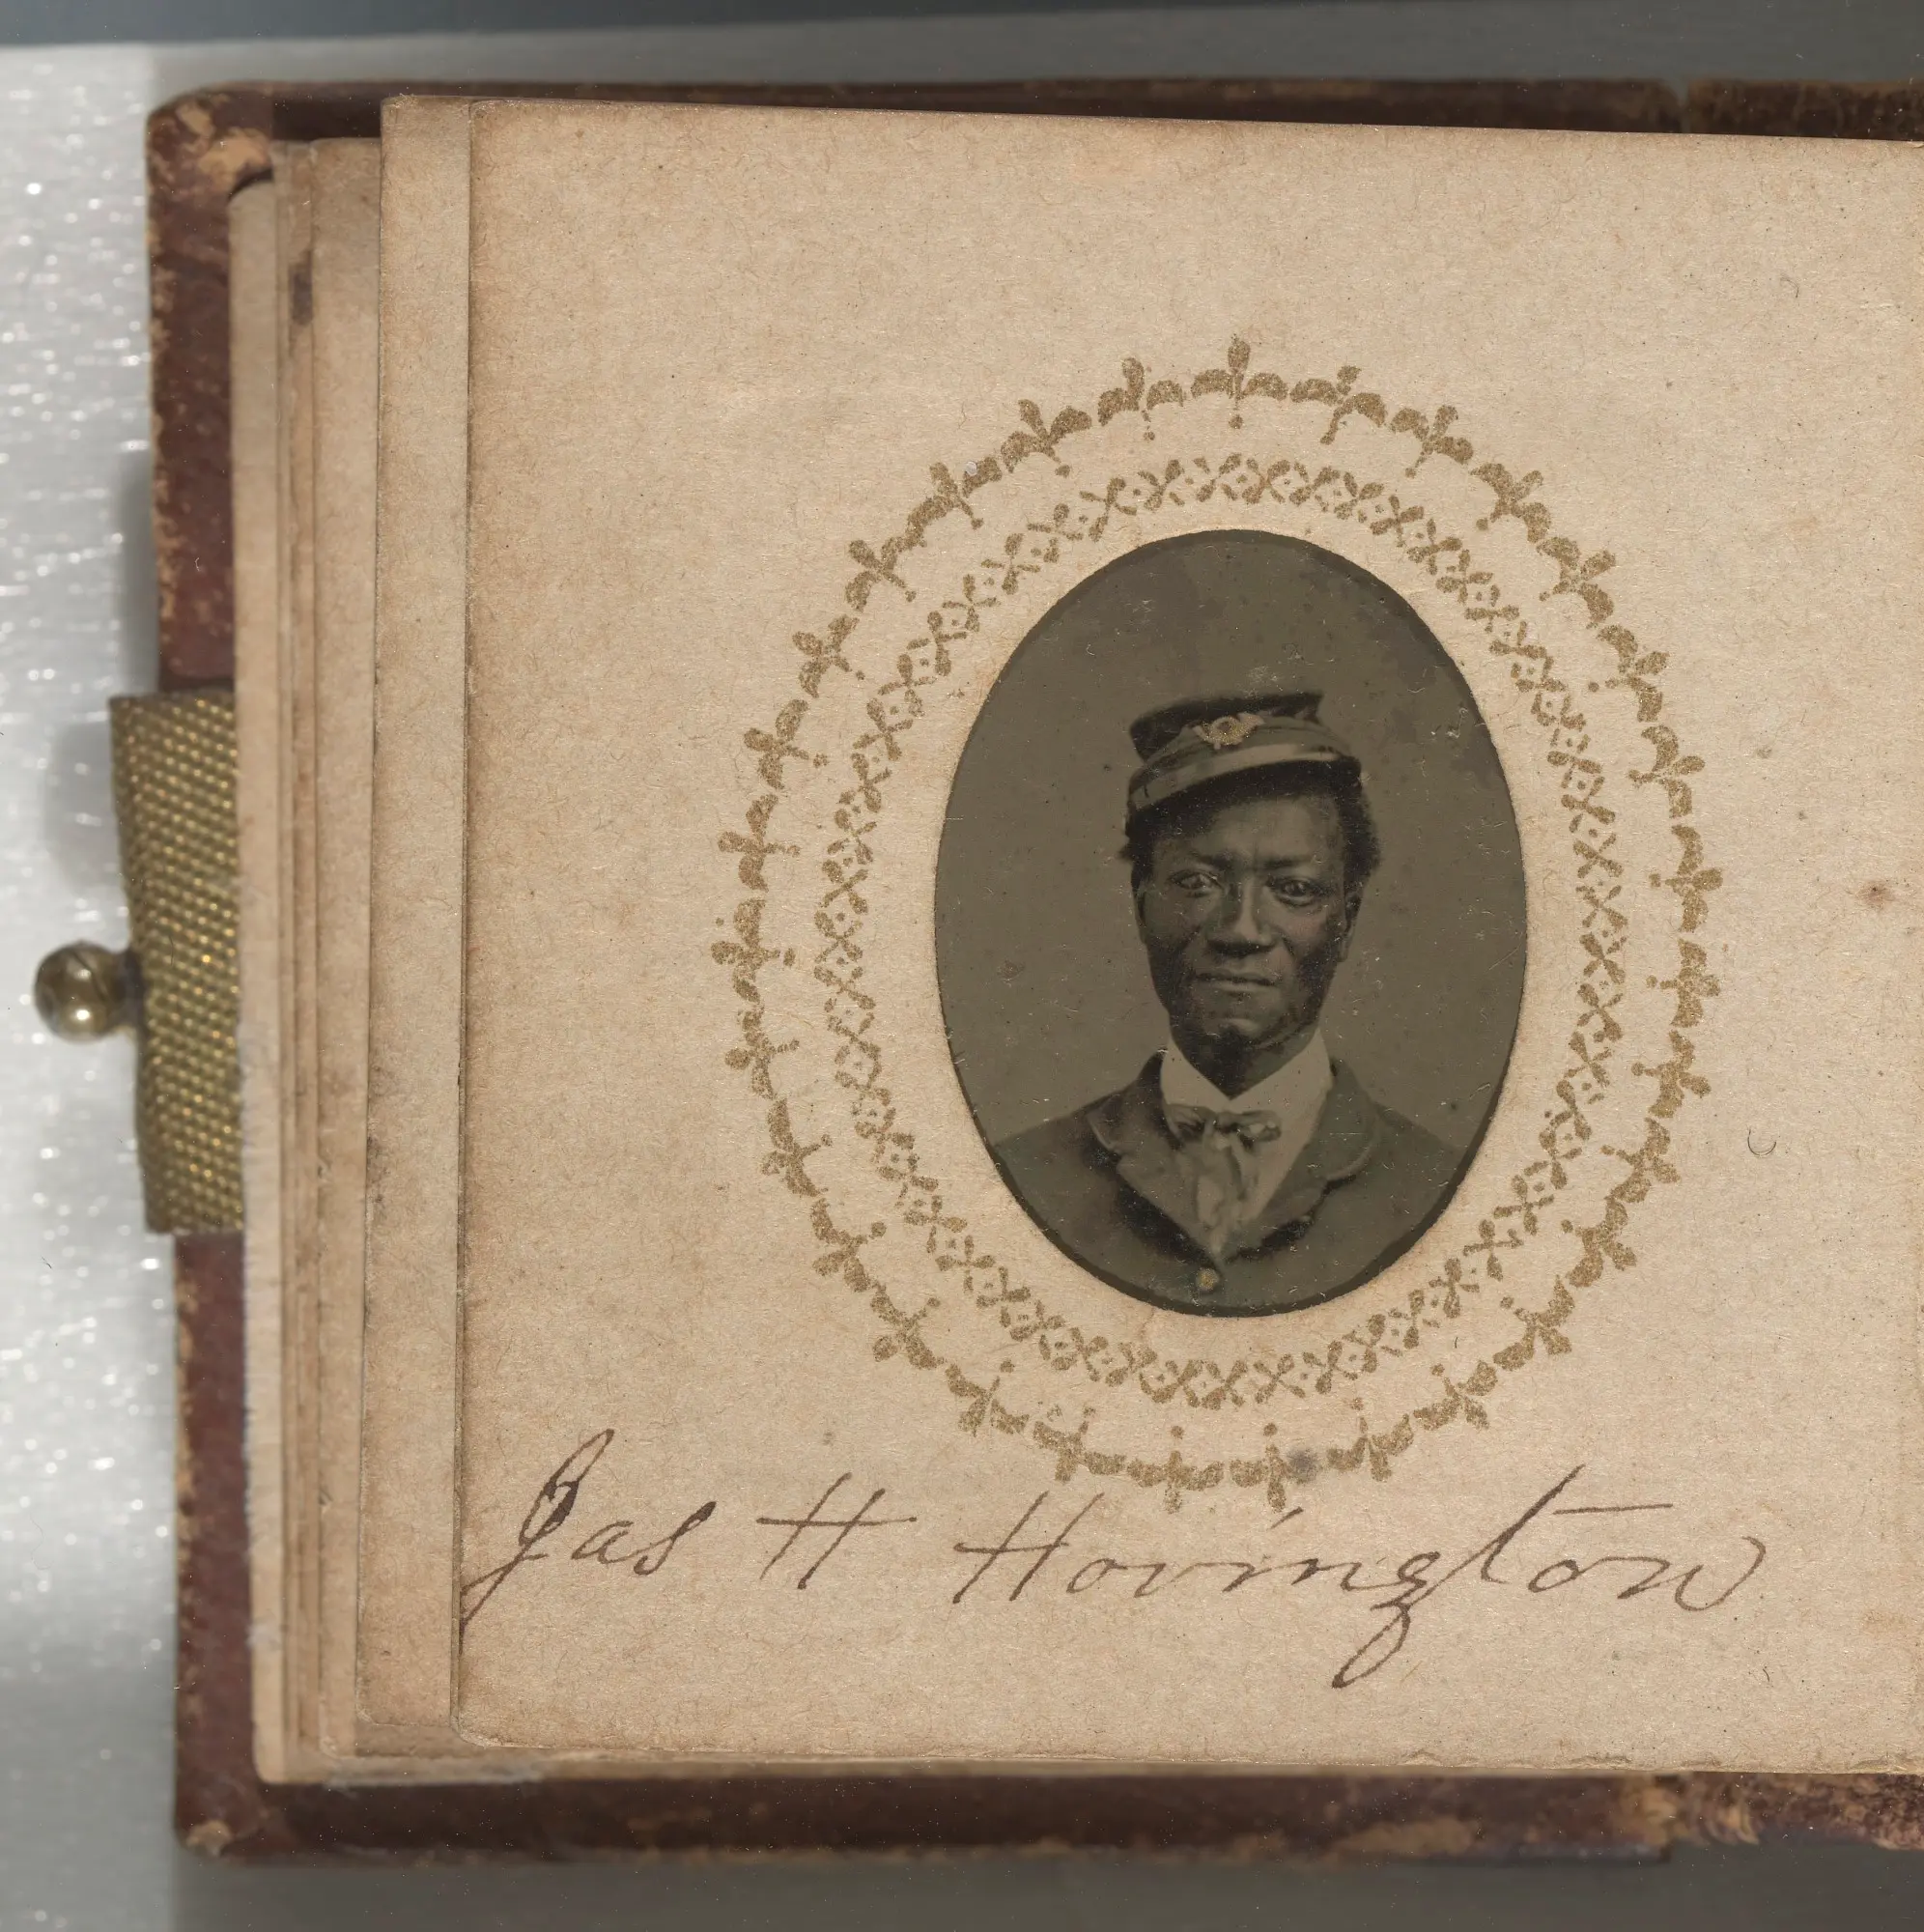 Jas H Hovington